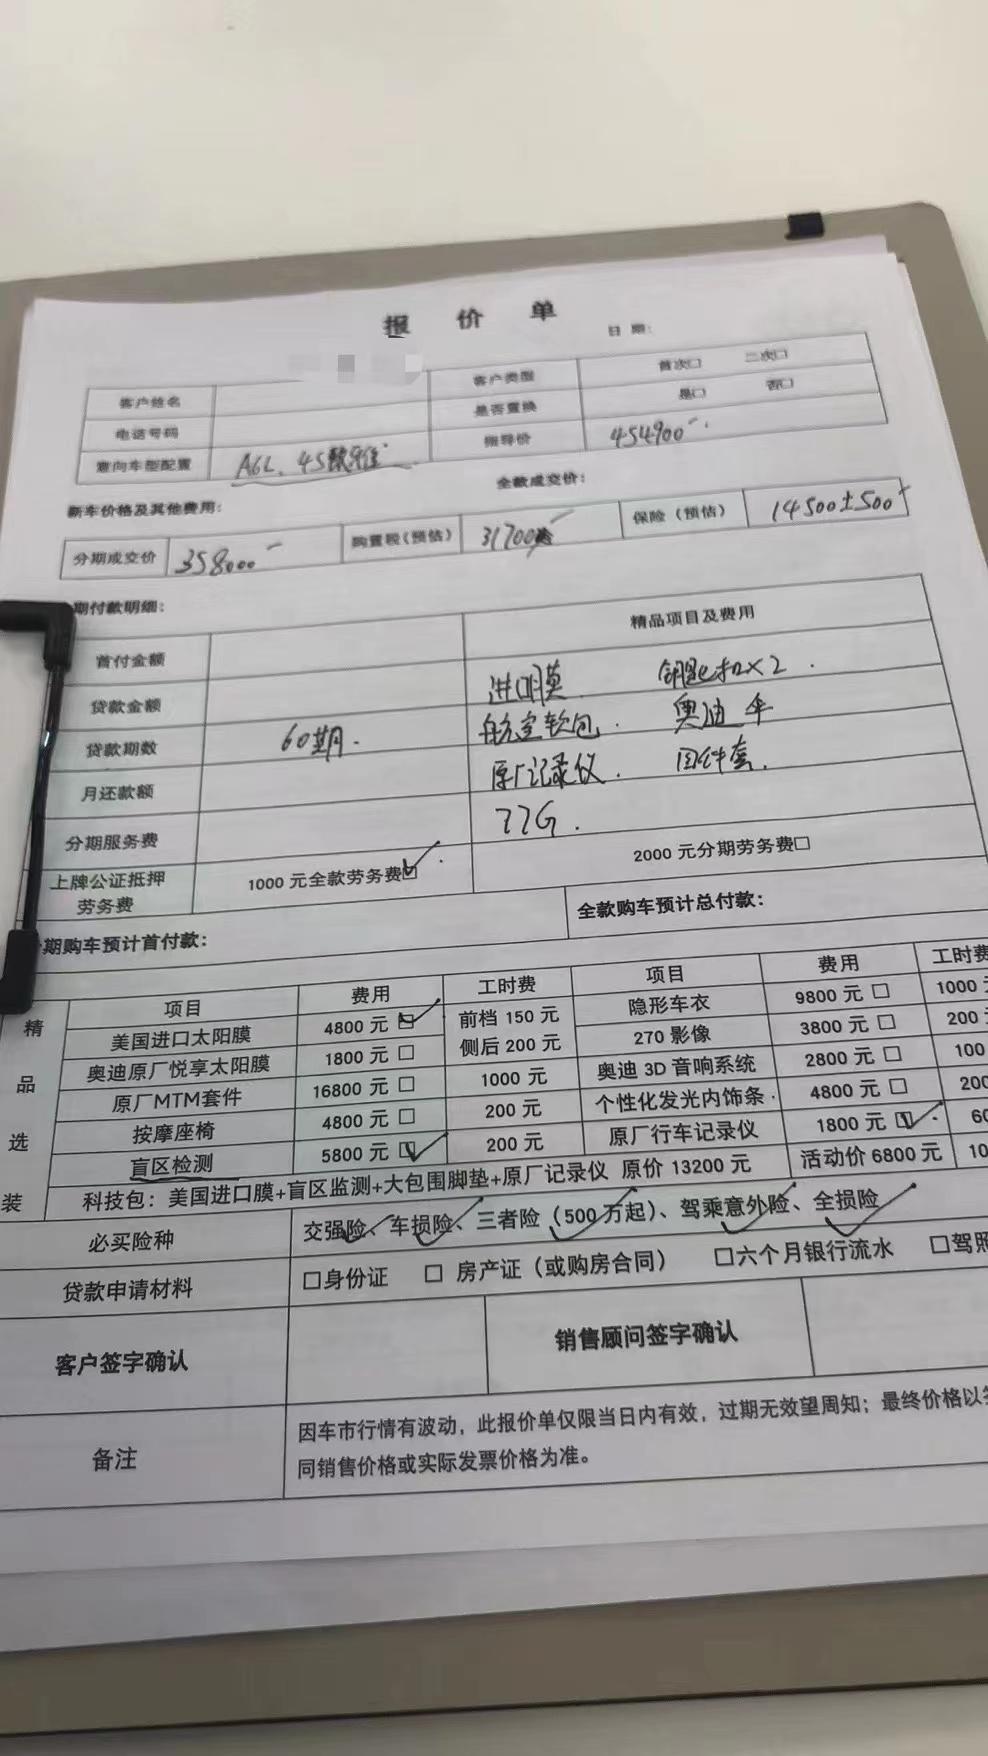 报 价 单
日 期:
客户姓名 客户类型 首次□ 二次□
电话号码 是否置换 是□ 否□
意向车型配置 A6L、45臻选 指导价 454900
新车价格及其他费用: 全款成交价:
分期成交价 358000 购置税(预估) 31700 保险(预估) 14500±500
期付款明细:
首付金额 精品项目及费用
贷款金额 进口膜 钥匙扣×2
贷款期数 60期. 航空软包. 奥迪伞
月还款额 原厂记录仪. 四件套.
分期服务费 77G.
上牌公证抵押劳务费 1000元全款劳务费☑ 2000元分期劳务费□
期购车预计首付款: 全款购车预计总付款:
精品选装
项目 费用 工时费 项目 费用 工时费
美国进口太阳膜 4800元☑ 前档150元 侧后200元 隐形车衣 9800元□ 1000
奥迪原厂悦享太阳膜 1800元□ 270影像 3800元□ 200
原厂MTM套件 16800元□ 1000元 奥迪3D音响系统 2800元□ 100
按摩座椅 4800元□ 200元 个性化发光内饰条 4800元□ 200
盲区检测 5800元☑ 200元 原厂行车记录仪 1800元☑ 60
科技包: 美国进口膜+盲区监测+大包围脚垫+原厂记录仪 原价13200元 活动价6800元 10
必买险种 交强险、车损险、三者险(500万起)、驾乘意外险、全损险
贷款申请材料 □身份证 □房产证(或购房合同) □六个月银行流水 □驾照
客户签字确认 销售顾问签字确认
备注 因车市行情有波动,此报价单仅限当日内有效,过期无效望周知;最终价格以
同销售价格或实际发票价格为准。